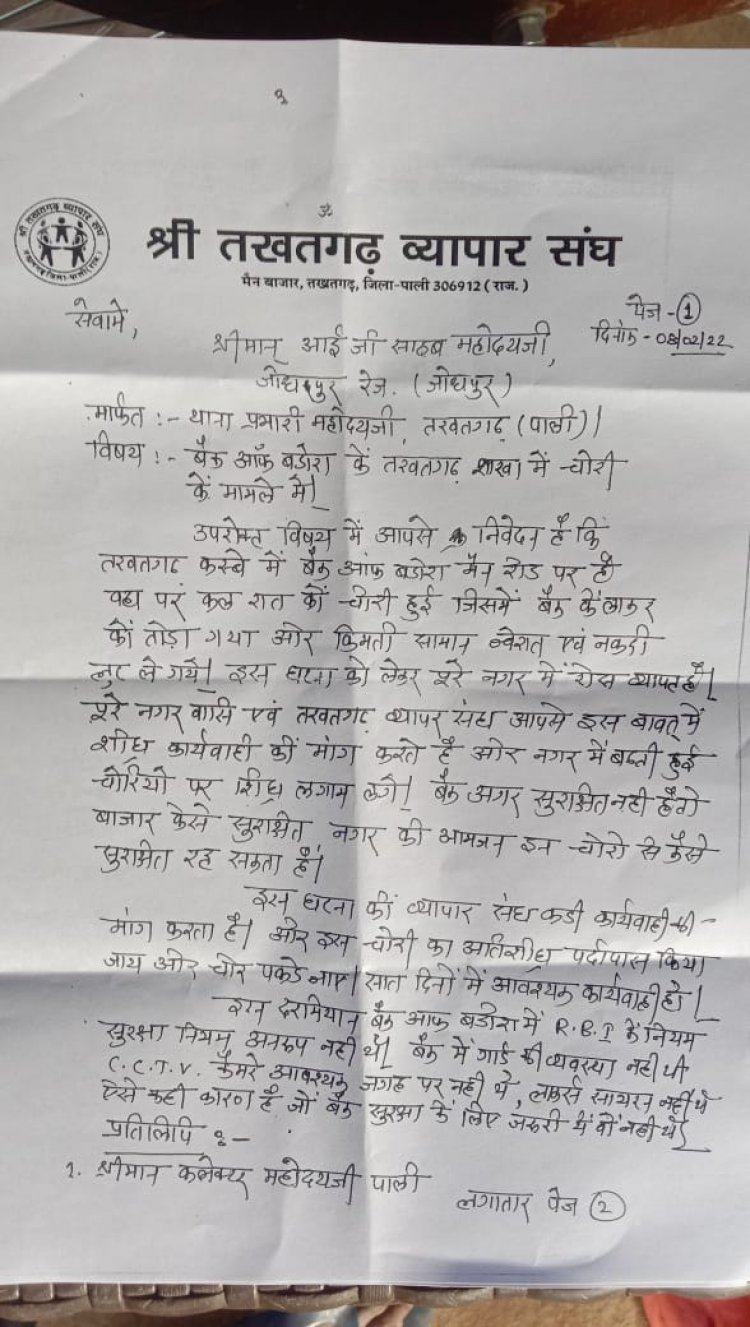 १
श्री तखतगढ़ व्यापार संघ
ॐ
श्री तखतगढ़ व्यापार संघ
मैन बाजार, तखतगढ़, जिला-पाली 306912 ( राज. )
पेज - 1
सेवामे,
दिनांक - 08/02/22
श्रीमान् आई जी साहब महोदयजी,
जोधपुर रेंज. (जोधपुर)
मार्फत :- थाना प्रभारी महोदयजी, तखतगढ (पाली)|
विषय :- बैंक ऑफ बडोरा कें तखतगढ शाखा में चोरी
कें मामले में|
उपरोक्त विषय में आपसे निवेदन हैं कि
तखतगढ कस्बे में बैंक आंफ बडोरा मैन रोड पर हैं
वहा पर कल रात कों चोरी हुई जिसमें बैंक कें लाकर
कों तोडा गया ओर किमती सामान ज्वेरात एवं नकदी
लुट ले गयें| इस घटना कों लेकर पुरे नगर में रोस व्याप्त हैं|
पुरे नगर वासि एवं तखतगढ़ व्यापर संघ आपसे इस बाबत् में
शीघ्र कार्यवाही कीं मांग करते हैं ओर नगर में बढती हुई
चोरियो पर शिघ्र लगाम लगें| बैंक अगर सुरक्षित नही हैं तो
बाजार केसे सुरक्षित नगर की आमजन इन चोरो से कैसे
सुरक्षित रह सकता हैं|
इस घटना कीं व्यापार संघ कडी कार्यवाही की -
मांग करता हैं| ओर इस चोरी का अतिशीघ्र पर्दापास किया
जाय ओर चोर पकडे जाए| सात दिनों में आवश्यक कार्यवाही हो|
इस दरमियान बैंक आफ बडोरा में R.B.I कें नियम
सुरक्षा नियम अनरूप नही थें| बैंक में गार्ड की व्यवस्था नही थी
C.C.T.V. कैमरे आवश्यक जगह पर नही थे, लाकर्स सायरन नहीं थे
ऐसे कही कारण हैं जों बैंक सुरक्षा कें लिए जरूरी थें वों नही थें|
प्रतिलिपि :-
१. श्रीमान कलेक्टर महोदयजी पाली
लगातार पेज 2